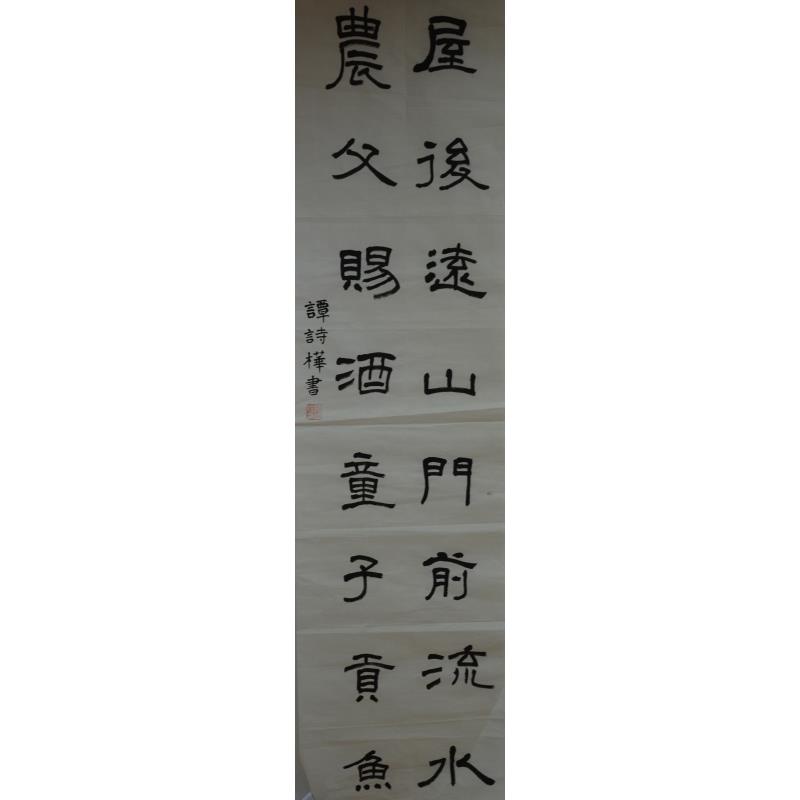 屋後遠山門前流水
農父賜酒童子貢魚
譚詩樺書